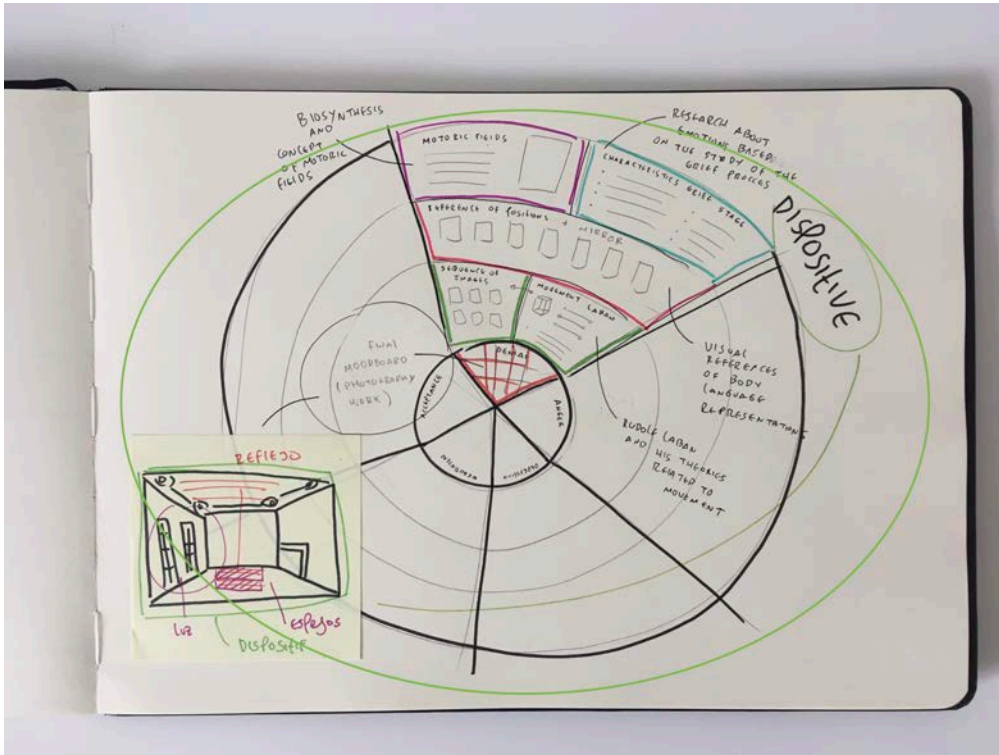 BIOSYNTHESIS
AND
CONCEPT
OF MOTORIC
FIELDS
MOTORIC FIELDS
RESEARCH ABOUT
EMOTIONS BASED
ON THE STUDY OF THE
GRIEF PROCCES
CHARACTERISTICS GRIEF STAGE
DISPOSITIVE
REFERENCE OF POSITIONS + MIRROR
SEQUENCE OF
IMAGES
MOVEMENT LABAN
DENIAL
ANGER
DEPRESSION
ACCEPTANCE
FINAL
MOODBOARD
(PHOTOGRAPHY
WORK)
VISUAL
REFERENCES
OF BODY
LANGUAGE
REPRESENTATIONS
RUDOLF LABAN
AND HIS THEORIES
RELATED TO
MOVEMENT
REFLEJO
LUZ
ESPEJOS
DISPOSITIF